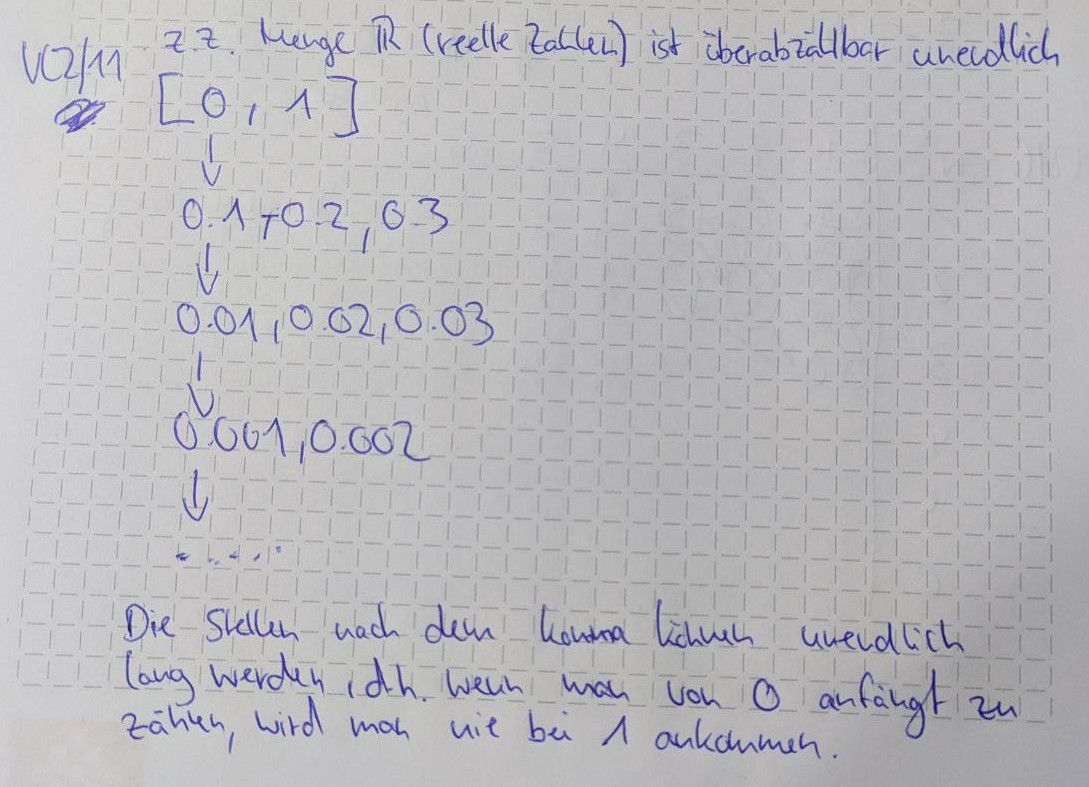 V(2/11
z.z. Menge ℝ (reelle Zahlen) ist überabzählbar unendlich
[0, 1]
↓
0.1, 0.2, 0.3
↓
0.01, 0.02, 0.03
↓
0.001, 0.002
↓
.....
Die Stellen nach dem Komma können unendlich
lang werden, d.h. wenn man von 0 anfängt zu
zählen, wird man nie bei 1 ankommen.